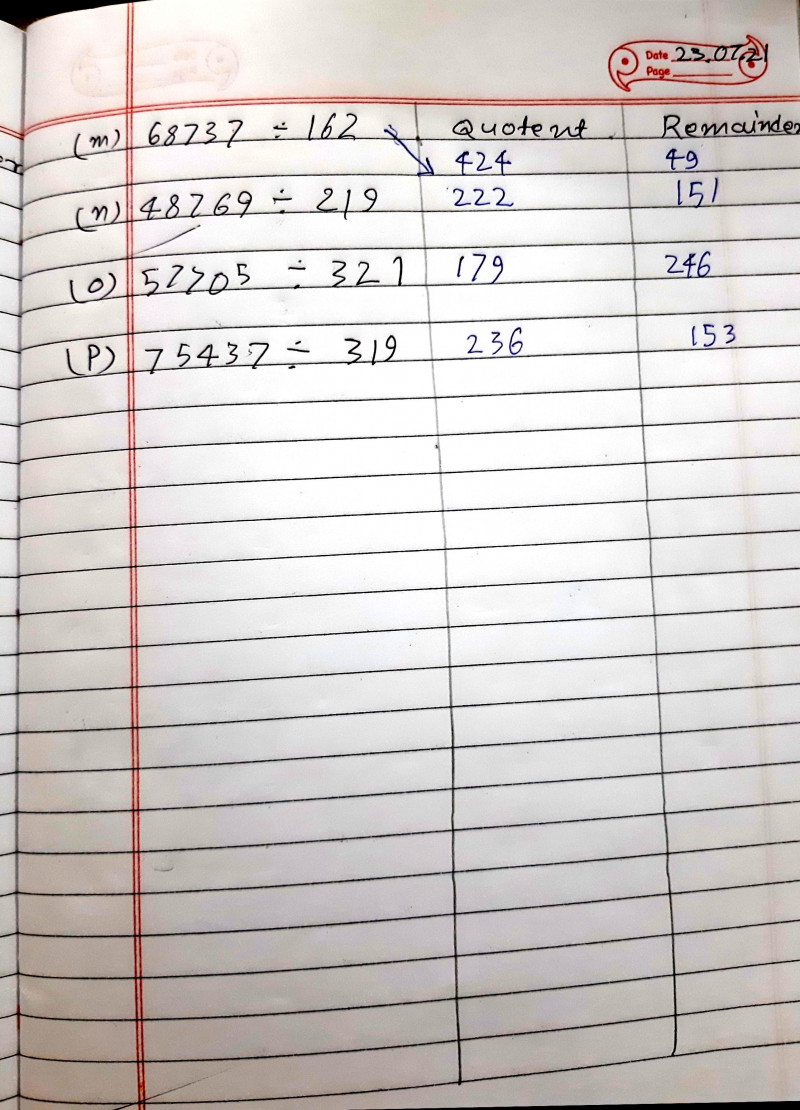 Date 23.07.21
Page
(m) 68737 ÷ 162 Quotent Remainder
424 49
(n) 48769 ÷ 219 222 151
(o) 57705 ÷ 321 179 246
(P) 75437 ÷ 319 236 153